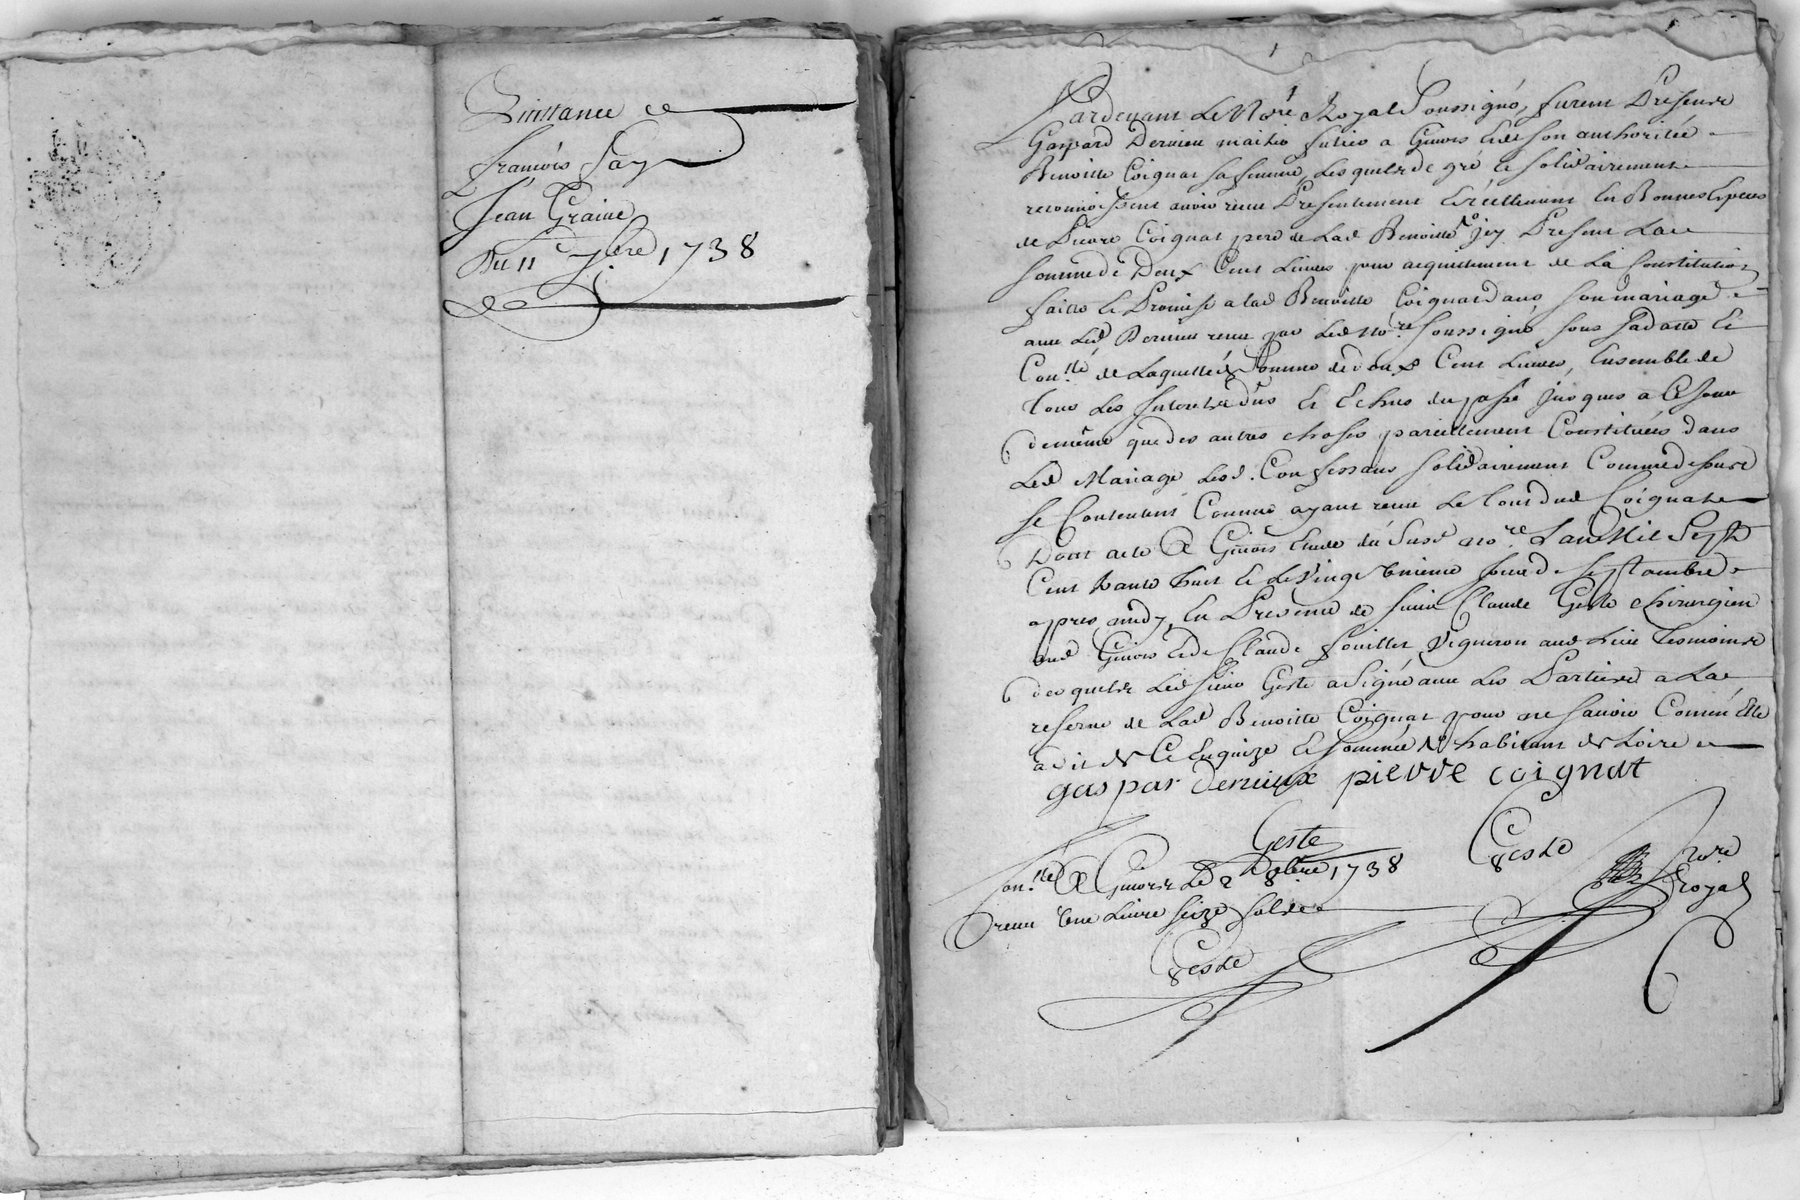 Quittance
françois fay
Jean Graine
Du 11e 7bre 1738
Pardevant Le Nore Royal Soussigné, furent Présents
Gaspard Dervieu maitre futier a Givors Et de son authoritée
Benoitte Coignat sa femme, Lesquels de gré et solidairement
reconnoissent avoir reçu Présentement Et réellement En Bonnes Especes
de Pierre Coignat pere de Lad Benoitte jcy Présent La
somme de Deux Cent Livres pour acquittement de La Constitution
faitte Et Promise a lad Benoitte Coignat dans son mariage
avec Led Dervieu reçu par Led Nore soussigné sous sa datte Et
Conllé de Laquelle somme de deux Cent Livres, Ensemble de
tous Les Interets dus Et Echus du passé jusques a Ce jour
de même que des autres choses pareillement Constituées dans
Led Mariage Lesd. Confessans solidairement Comme dessus
se Contentent Comme ayant reçu Le tout dud Coignat
Dont acte A Givors Etude du susd nore L'an Mil Sept
Cent trante huit Et Le vingt unieme jour de septambre
apres midy, En Presence de sieur Claude Geste chirurgien
aud Givors Et de Claude fouillet vigneron aud Lieu tesmoins
desquels Led sieur Geste a signé avec Les Parties a La
reserve de Lad Benoitte Coignat pour ne savoir Comm'Elle
a dit de Ce Enquize Et sommée
gaspar derviux pierre coignat
Geste
Geste nore Royal
Conllé A Givors Le 2 8bre 1738
reçu une Livre seize sols
Geste